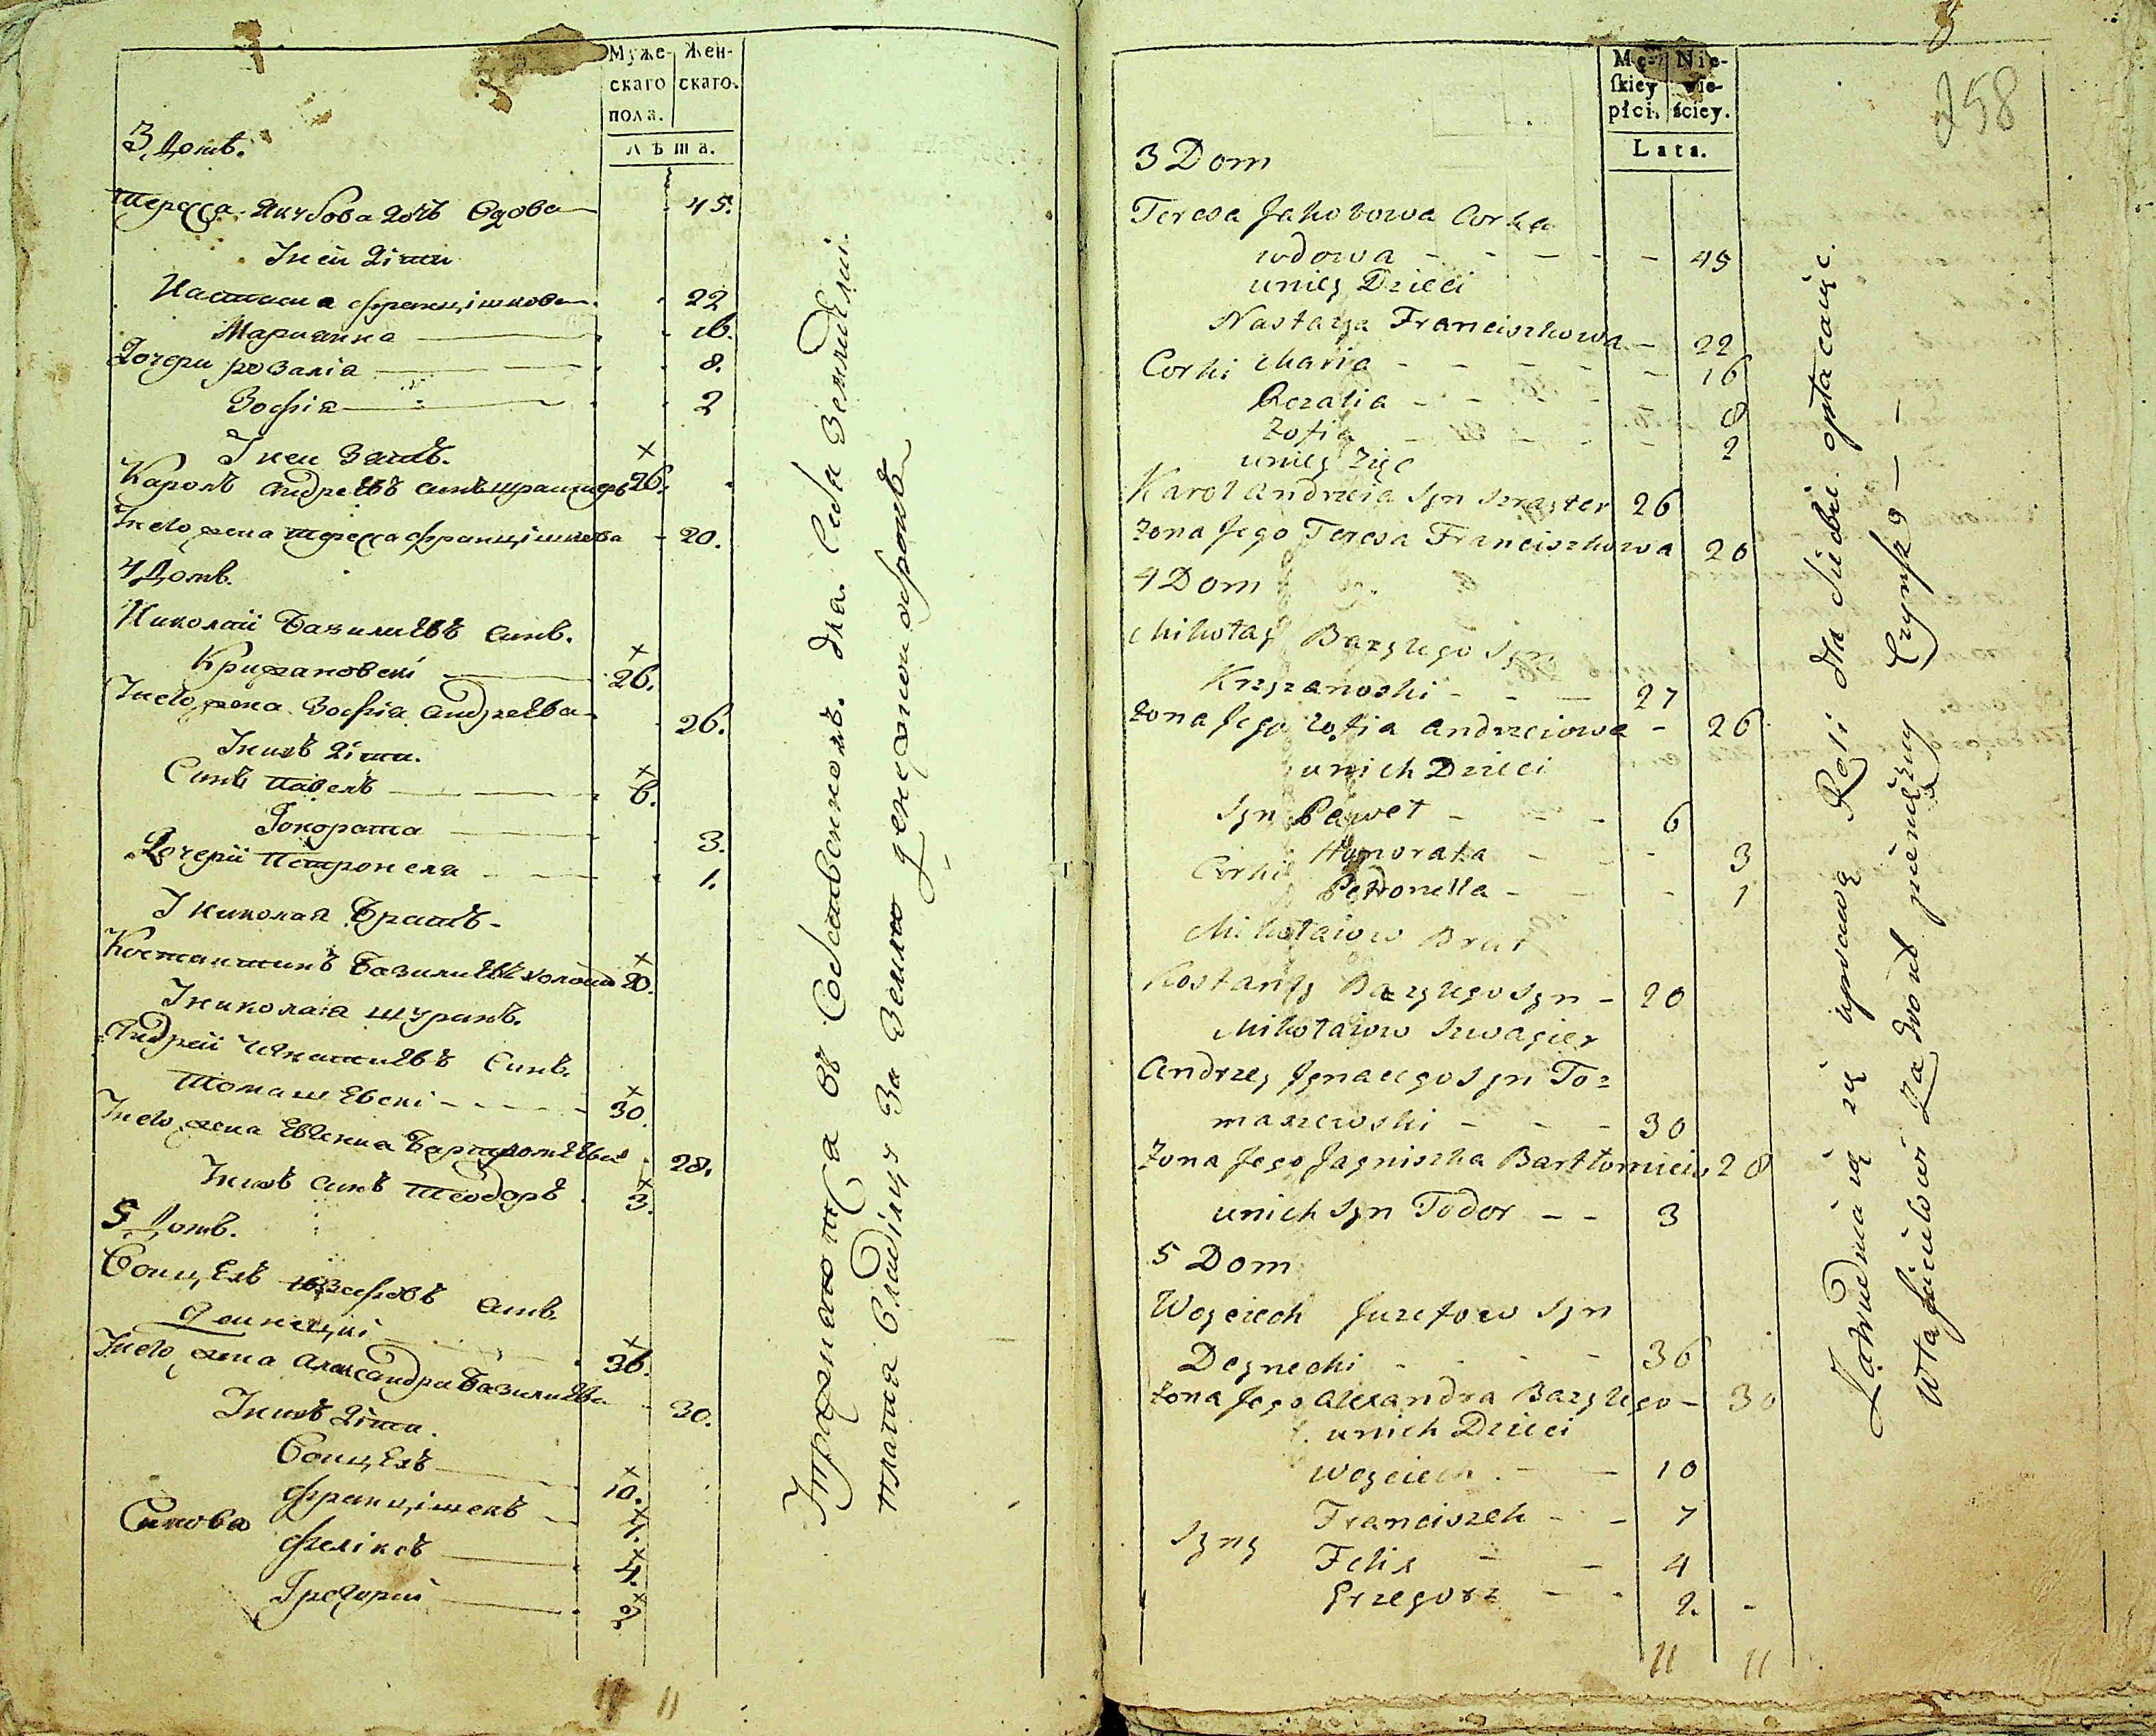 Муже-скаго пола. Жен-скаго.
лѣта.
3 Домъ.
Тересса Якубова дочъ вдова 45.
У неи діти
Настася Францішкова 22
Марианна 16.
Дочери розаліа 8.
Зофіа 2
У неи Зять.
Кароль Андреевъ синъ 26.
Его жена Тересса Францішкова 20.
4 Домъ.
Николаи Базилиевъ синъ.
Крижановскі 26.
Его жена Зофіа Андреева 26.
У нихъ діти.
Синъ Павелъ 6.
Гонората 3.
Дочерѝ Петронела 1.
У николая Братъ -
Костантинъ Базилиевъ холостъ 20.
У николаіа шуринъ.
Андреи Игнатиевъ Синъ.
Томашевскі 30.
Его жена Евгениа 28.
У нихъ синъ Теодоръ 3.
5 Домъ.
Воицехъ юзефовъ синъ.
Дейнецкі 36.
Его жена Александра Базилиева 30.
У нихъ діти.
Воицехъ 10.
Францішекъ 7.
Синова Феліксъ 4.
Грегории 2
11 11
Упражняются въ для себя Земледѣлиі.
платя владілцу За Землю денежной оброкъ
8
258
Męskiey płci. Niewieściey.
Lata.
3 Dom
Teresa Jakobowa Corka
wdowa - - - - - 45
uniey Dzieci
Nastazya Franciszkowa - 22
Corki Maria - - - - - 16
Rozalia - - - - 8
Zofia - - - - 2
uniey Zięc
Karol Andrzeia Syn Szayter 26
Zona Jego Teresa Franciszkowa 20
4 Dom
Mikołay Bazylego Syn
Krzyzanoski - - - 27
Zona Jego Zofia Andrzeiowa - 26
unich Dzieci
Syn Paweł - - - 6
Honorata - - - 3
Corki Petronella - - - 1
Mikołaiow Brat
Kostanty Bazylego Syn - 20
Mikołaiow Szwagier
Andrzey Jgnacego Syn To=
maszewski - - - 30
Zona Jego Jagniszka Bartłomieiow 28
unich Syn Todor - - 3
5 Dom
Woyciech Juzefow Syn
Deynecki - - - - 36
Zona Jego Alexandra Bazylego - 30
unich Dzieci
Woyciech - - 10
Franciszek - - 7
Syny Felix - - 4
Grzegorz - - 2. -
11 11
Zatrudniaią się uprawą Roli dla Siebie opłacaiąc.
Właścicielowi Za Grunt pieniężny Czynsz - -